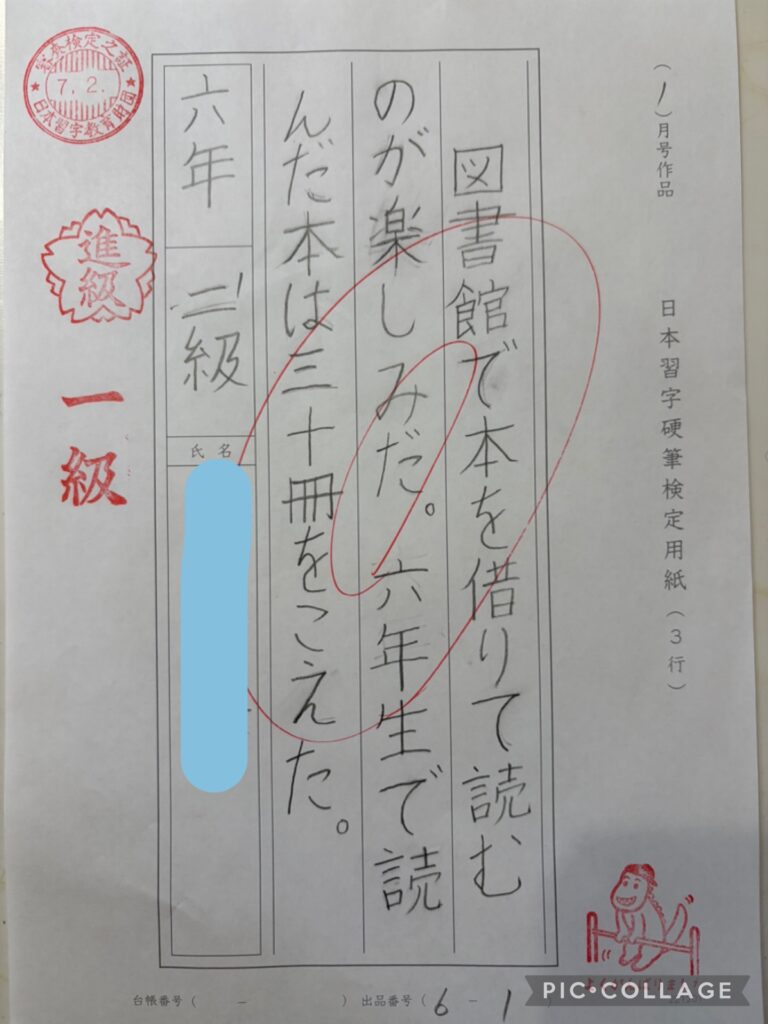 (1)月号作品 日本習字硬筆検定用紙(3行)
図書館で本を借りて読む
のが楽しみだ。六年生で読
んだ本は三十冊をこえた。
六年 二級
氏名
審査検定之証
7.2.
日本習字教育財団
進級
一級
台帳番号( － ) 出品番号(6－1)
PIC•COLLAGE